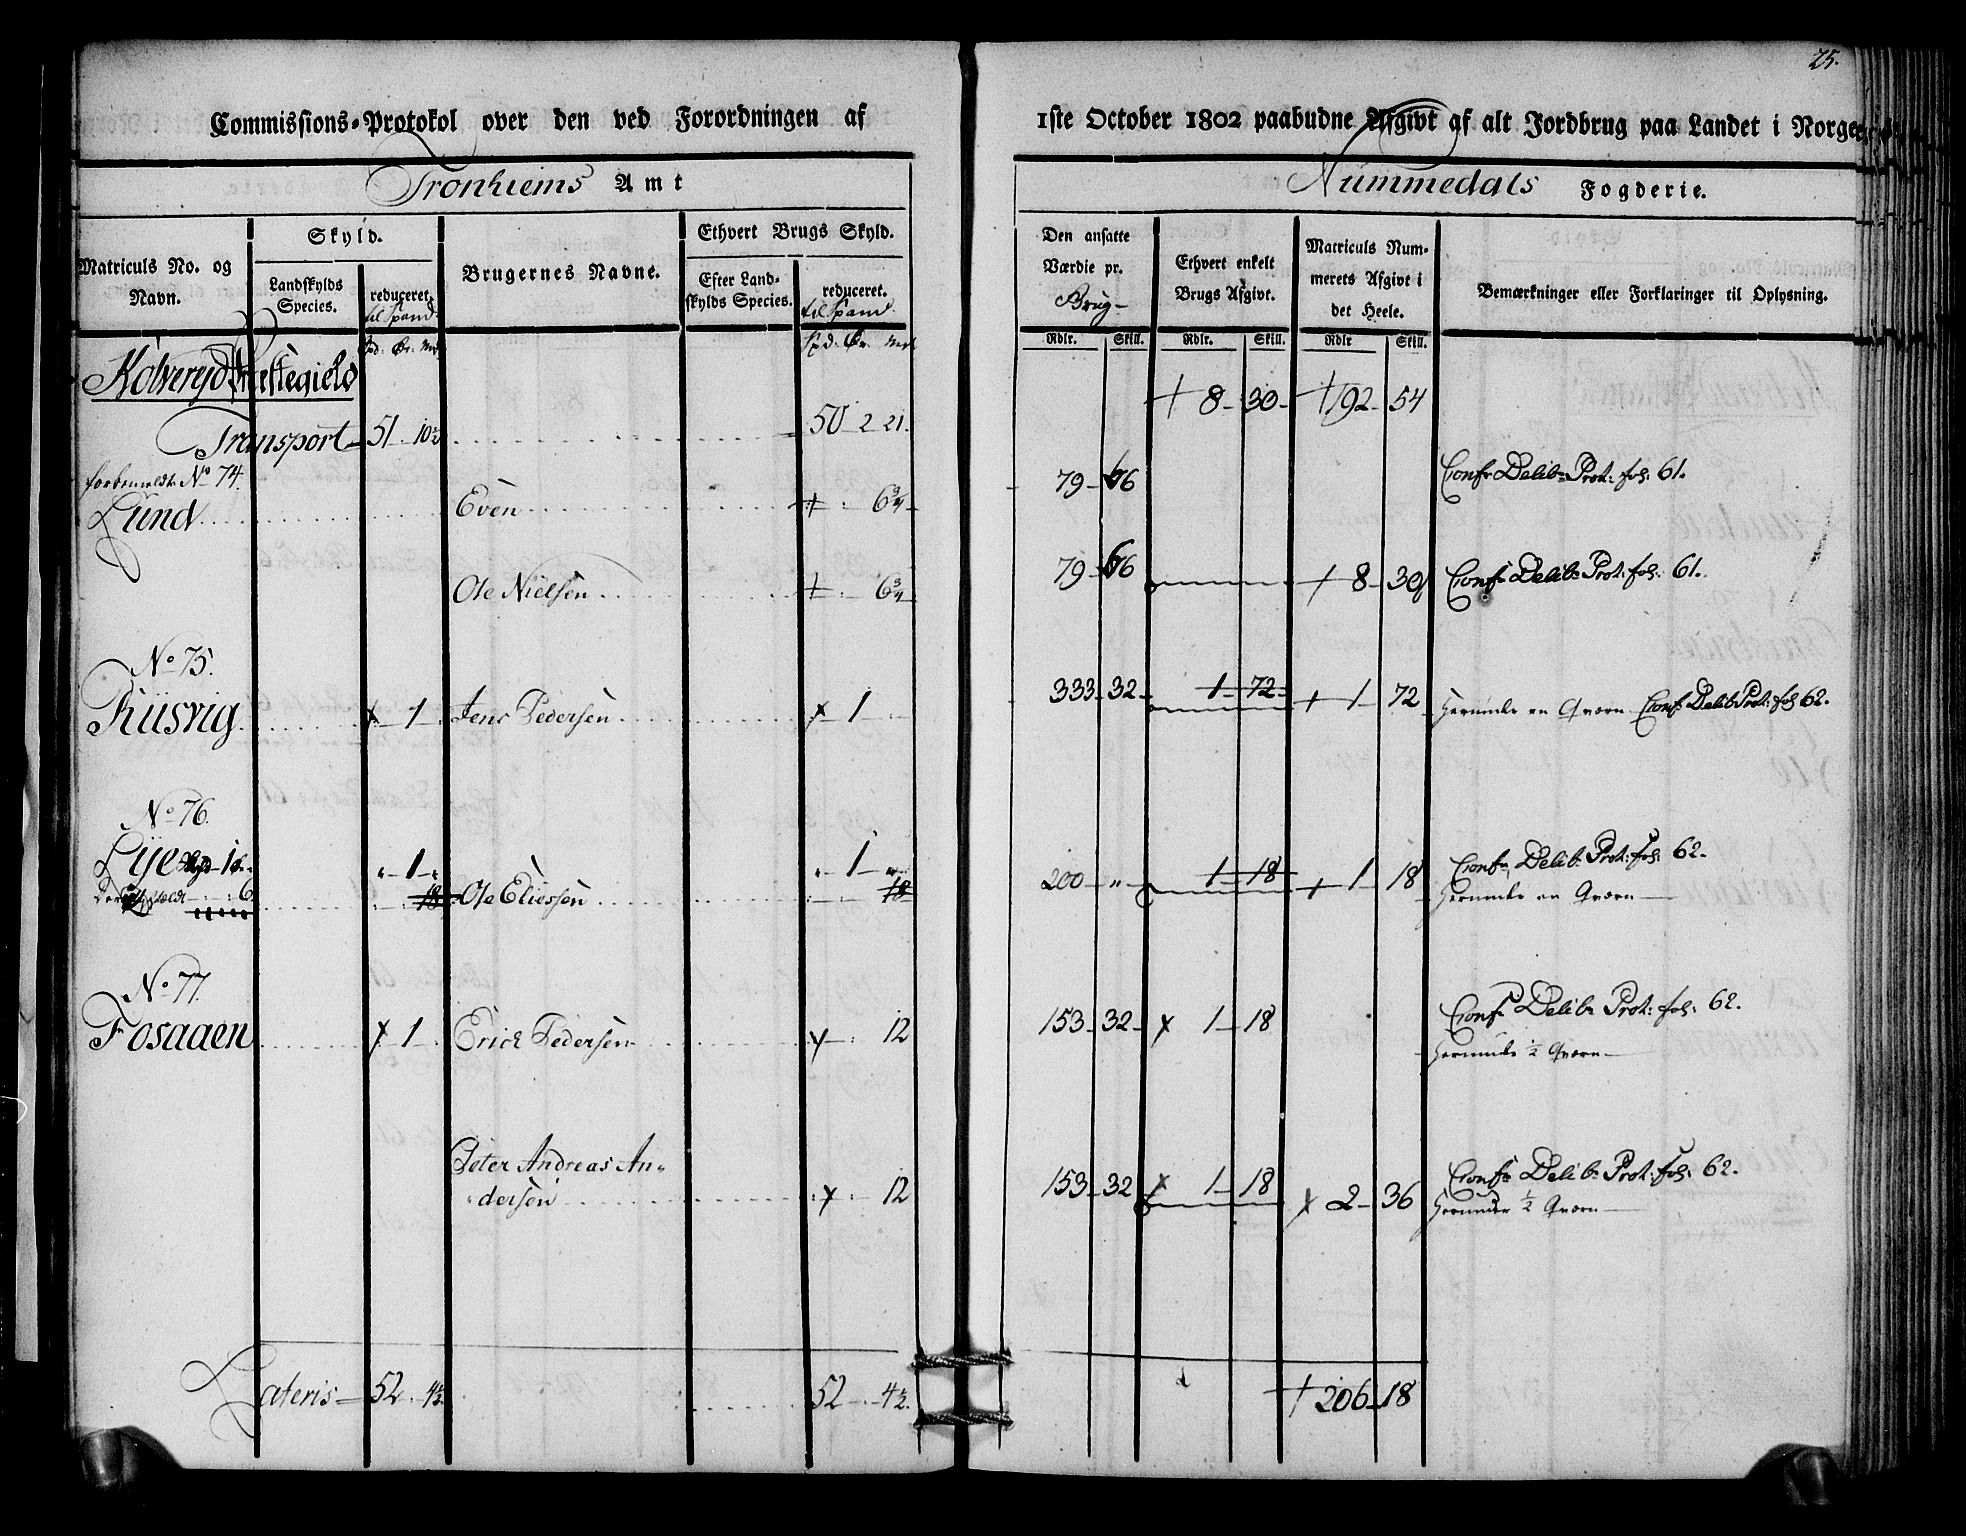 25.
Commissions-Protokol over den ved Forordningen af 1ste October 1802 paabudne Afgivt af alt Jordbrug paa Landet i Norge
Tronhiems Amt
Nummedals Fogderie.
Matriculs No. og Navn.
Skyld.
Landskylds Species.
reduceret. til Spand.
Brugernes Navne.
Ethvert Brugs Skyld.
Efter Landskylds Species.
reduceret. til Spand.
Den ansatte Værdie pr. Brug-
Ethvert enkelt Brugs Afgivt.
Matriculs Nummerets Afgivt i det Heele.
Bemærkninger eller Forklaringer til Oplysning.
Spd: Ør. Mrk
Spd: Ør. Mrk
Rdlr. Skill. Rdlr. Skill. Rdlr Skill.
Kolveryd Præstegield
8 - 30 - 192 - 54
Transport - 51 . 10½ 50 - 2 21.
forbemeldte No 74.
Lund Even 6¾ 79 - 66 Confr Delib: Prot: fol: 61.
Ole Nielsen 6¾ 79 - 66 8 - 30 Confr Delib: Prot: fol: 61.
No 75.
Riisvig 1 Jens Pedersen 1 333 - 32 - 1 - 72 - 1 - 72 Herunder en Qværn Confr Delib: Prot: fol 62.
No 76.
Lye 1 1 Confr Delib: Prot: fol: 62.
6 18 Ole Eliessen 18 200 - " - 1 - 18 1 - 18 Herunder en Qværn
No 77.
Fosaaen 1 Erich Pedersen 12 153 - 32 - 1 - 18 Confr Delib: Prot: fol: 62.
Herunder ½ Qværn
Peter Andreas An-
dersen 12 153 - 32 1 - 18 2 - 36 Confr Delib: Prot: fol: 62.
Herunder ½ Qværn
Lateris - 52 . 4½ 52 - 4½. 206 - 18